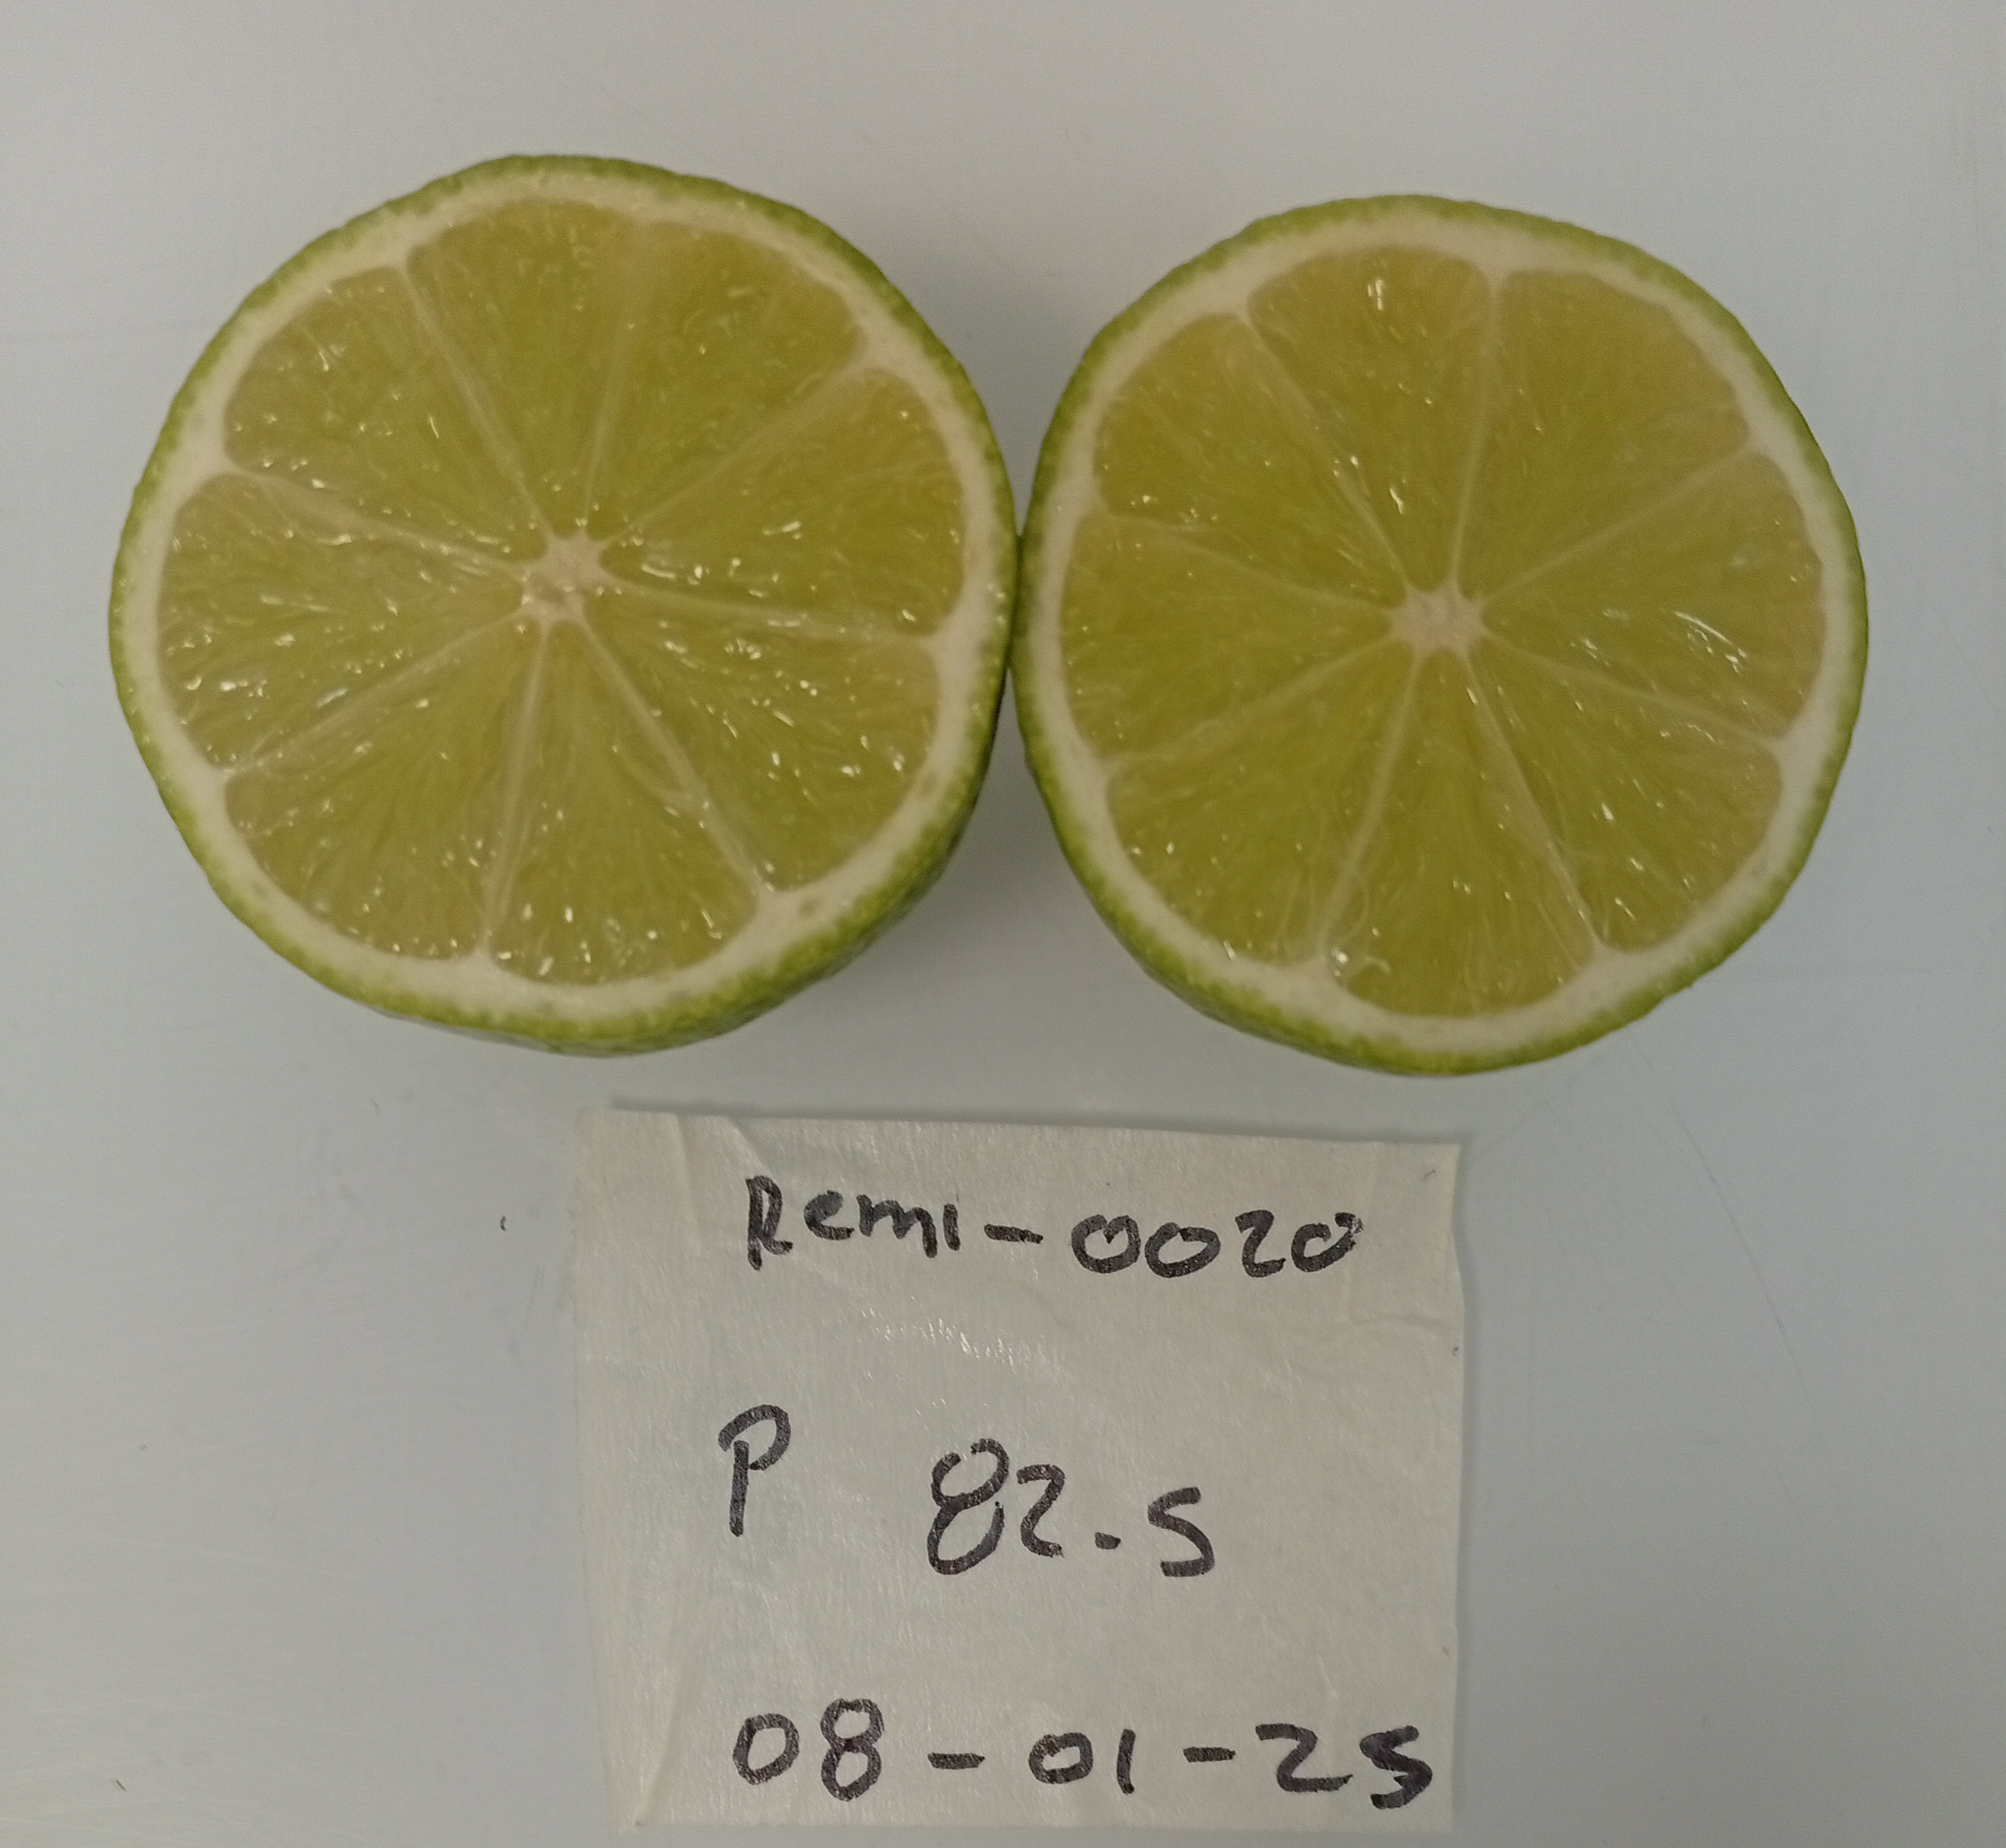 Remi-0020
P 82.5
08-01-25